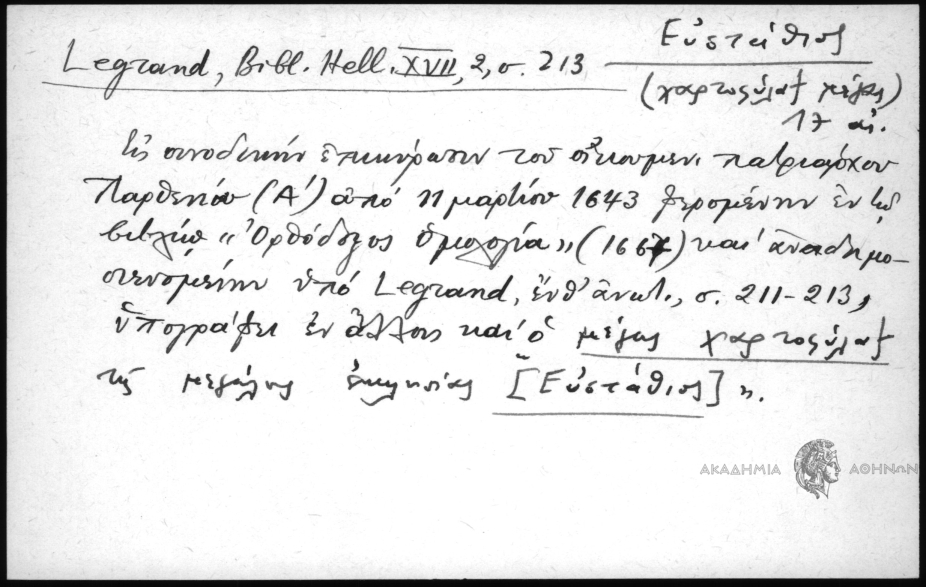 Legrand, Bibl. Hell. XVII, 2, σ. 213
Εὐστάθιος
(χαρτοφύλαξ μέγας)
17 αἰ.
Εἰς συνοδικὴν ἐπικύρωσιν τοῦ οἰκουμεν. πατριάρχου
Παρθενίου (Α') ἀπό 11 μαρτίου 1643 φερομένην ἐν τῷ
βιβλίῳ «Ὀρθόδοξος ὁμολογία» (1667) καὶ ἀναδημο-
σιευομένην ὑπό Legrand, ἔνθ' ἀνωτ., σ. 211-213,
ὑπογράφει ἐν ἄλλοις καὶ ὁ μέγας χαρτοφύλαξ
τῆς μεγάλης ἐκκλησίας "[Εὐστάθιος]".
ΑΚΑΔΗΜΙΑ ΑΘΗΝΩΝ